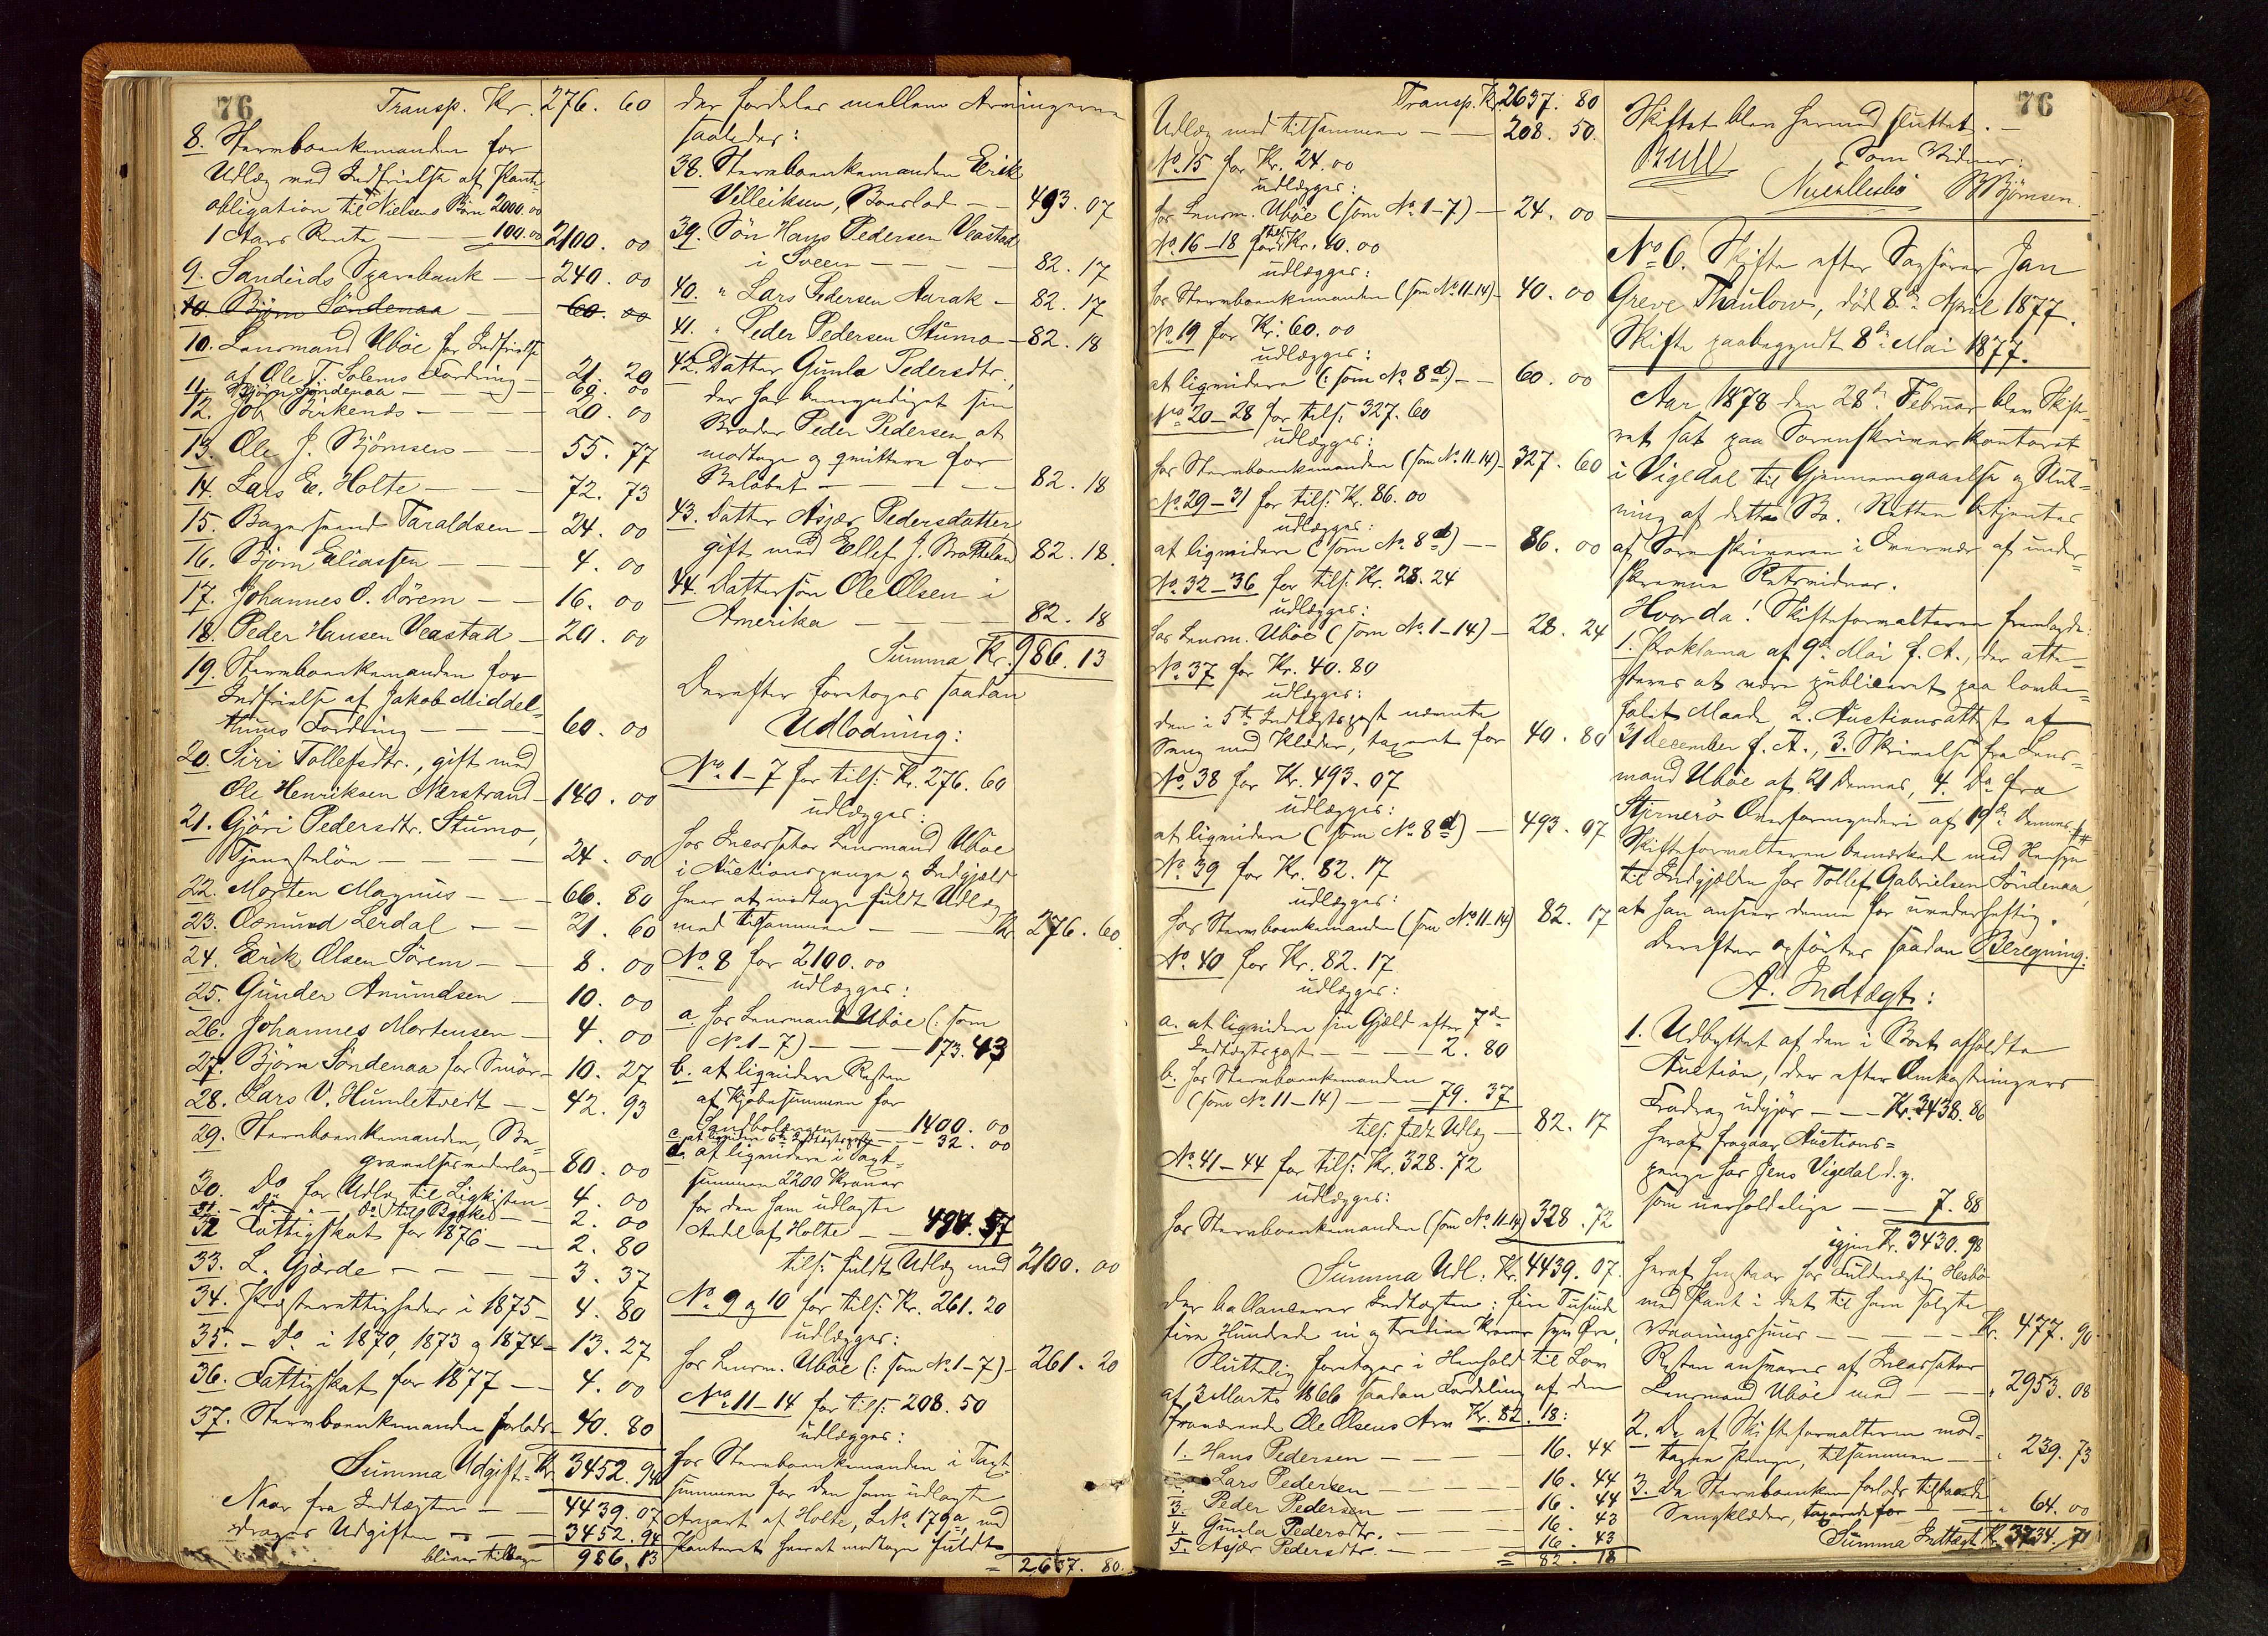 76
Transp. Kr. 276. 60
8. Stervboenkemanden for
Udlæg med Indfrielse af Pante-
obligation til Nielsens Börn 2000.00
1 Aars Rente — 100.00 2100. 00
9. Sandeids Sparebank — 240. 00
10 Björn Söndenaa — 60. 00
10. Lensmand Uböe for Indfrielse
af Ole T. Solems Fordring — 21. 20
11. Björn Söndenaa — 60. 00
12. Job Birkends — 20. 00
13. Ole J. Björnsen — 55. 77
14. Lars E. Holte — 72. 73
15. Taraldsen — 24. 00
16. Björn Eliassen — 4. 00
17. Johannes O. Dörem — 16. 00
18. Peder Hansen Veastad — 20. 00
19. Stervboenkemanden for
Indfrielse af Jakob Middel-
thuns Fordring — 60. 00
20. Siri Tollefsdtr., gift med
Ole Henriksen Nærstrand — 140. 00
21. Gjöri Pedersdtr. Stumo,
Tjenesteløn — 24. 00
22. Morten Magnus — 66. 80
23. Osmund Lerdal — 21. 60
24. Eerik Olsen Sörem — 8. 00
25. Gunder Amundsen — 10. 00
26. Johannes Mortensen — 4. 00
27. Björn Söndenaa for Smör — 10. 27
28. Lars V. Humletvedt — 42. 93
29. Stervboenkemanden, Be-
gravelsesvederlag — 80. 00
30. Do for Udlæg til Ligkisten — 4. 00
31. — Do — " — Do til — 2. 00
32 Fattigskat for 1876 — 2. 80
33. L. Gjerde — 3. 37
34. Presterettigheder i 1875 — 4. 80
35. — Do i 1870, 1873 og 1874 — 13. 27
36. Fattigskat for 1877 — 4. 00
37. Stervboenkemanden forlods — 40. 80
Summa Udgift Kr. 3452. 94
Naar fra Indtægten — 4439. 07
drages Udgiften — 3452. 94
bliver tilbage 986. 13
der fordeles mellem Arvingerne
saaledes:
38. Stervboenkemanden Eerik
Villeiksen, — 493. 07
39. Sön Hans Pedersen Veastad
i Sveen — 82. 17
40. " Lars Pedersen Aarak — 82. 17
41. " Peder Pedersen Stumo — 82. 18
42. Datter Gunla Pedersdtr.,
der har bemyndiget sin
Broder Peder Pedersen at
modtage og qvittere for
Belöbet — 82. 18
43. Datter Asjær Pedersdatter
gift med Ellef J. 82. 18
44. Dattersön Ole Olsen i
Amerika — 82. 18
Summa Kr. 986. 13
Derefter foretoges saadan
Udlodning:
No. 1—7 for tils: Kr. 276. 60
udlægges:
hos Incassator Lensmand Uböe
i Auctionspenge og Indgjæld
hvor at modtage fuldt Udlæg
med tilsammen — Kr. 276. 60
No. 8 for 2100. 00
udlægges:
a. hos Lensmand Uböe (: som
No. 1—7) — 173. 43
b. at liqvidere Resten
af Kjöbesummen for
— 1400. 00
c. at liqvidere 6te Indtægtspost — 32. 00
d. at liqvidere i Taxt-
summen 2200 Kroner
for den ham udlagte
Andel af Holte — 494. 57
tils: fuldt Udlæg med 2100. 00
No. 9 og 10 for tils: Kr. 261. 20
udlægges:
hos Lensm. Uböe (: som No. 1—7) — 261. 20
No. 11—14 for tils: 208. 50
udlægges:
hos Stervboenkemanden i Taxt-
summen for den ham udlagte
Anpart af Holte, LNo. 179a med
Panteret hvorat modtage fuldt
= 2637. 80.
76
Transp. Kr. 2637. 80
Udlæg med tilsammen — 208. 50.
No. 15 for Kr. 24. 00
udlægges:
hos Lensm. Uböe (som No. 1—7) — 24. 00
No. 16—18 for tils: Kr. 40. 00
udlægges:
hos Stervboenkemanden (som No. 11—14) — 40. 00
No. 19 for Kr: 60. 00
udlægges:
at liqvidere (: som No. 8 d) — 60. 00
No. 20—28 for tils: 327. 60
udlægges:
hos Stervboenkemanden (som No. 11—14) — 327. 60
No. 29—31 for tils: Kr. 86. 00
udlægges:
at liqvidere (som No. 8 d) — 86. 00
No. 32—36 for tils: Kr. 28. 24
udlægges:
hos Lensm. Uböe (som No. 1—14) — 28. 24
No. 37 for Kr. 40. 80
udlægges:
den i 5te Indtægtspost nævnte
Seng med Klæder, taxeret for 40. 80
No. 38 for Kr. 493. 07
udlægges:
at liqvidere (som No. 8 d) — 493. 07
No. 39 for Kr. 82. 17
udlægges:
hos Stervboenkemanden (som No. 11—14) 82. 17
No. 40 for Kr. 82. 17
udlægges:
a. at liqvidere sin Gjæld efter 7de
Indtægtspost — 2. 80
b. hos Stervboenkemanden
(som No. 11—14) — 79. 37
tils. fuldt Udlæg — 82. 17
No. 41—44 for tils: Kr. 328. 72
udlægges:
hos Stervboenkemanden (som No. 11—14) 328. 72
Summa Udl: Kr. 4439. 07.
der ballancerer Indtægten: fire Tusinde
fire Hundrede ni og tredive Kroner syv Øre.
Sluttelig foretoges i Henhold til Lov
af 3 Marts 1866 saadan Fordeling af den
fraværende Ole Olsens Arv Kr. 82. 18:
1. Hans Pedersen — 16. 44
2. Lars Pedersen — 16. 44
3. Peder Pedersen — 16. 44
4. Gunla Pedersdtr. — 16. 43
5. Asjær Pedersdtr. — 16. 43
= 82. 18
Skiftet blev hermed sluttet. —
Bull
Som Vidner:
BBjörnsen.
No. 6. Skifte efter Sagförer Jan
Greve Thaulow, död 8de April 1877.
Skifte paabegyndt 8de Mai 1877.
Aar 1878 den 28de Februar blev Skifte-
ret sat paa Sorenskriverkontoret
i Vigedal til Gjennemgaaelse og Slut-
ning af dette Bo. Retten betjentes
af Sorenskriveren i Overvær af under-
skrevne Retsvidner.
Hvor da! Skifteforvalteren fremlagde:
1. Proklama af 9de Mai f. A., der atte-
steres at være publiceret paa lovbe-
falet Maade, 2. Auctionsattest af
31 December f. A., 3. Skrivelse fra Lens-
mand Uböe af 21 Dennes, 4. Do fra
Stjernerö Overformynderi af 19de Dennes
Skifteforvalteren bemærkede med Hensyn
til Indgjælden hos Tollef Gabrielsen Söndenaa,
at han anseer denne for uvederheftig.
Derefter opförtes saadan Beregning:
A. Indtægt:
1. Udbyttet af den i Boet afholdte
Auction, der efter Omkostningers
Fradrag udgjör — Kr. 3438. 86
heraf fragaar Auctions-
penge hos Jens Vigedal d. y.
som uerholdelige — 7. 88
igjen Kr. 3430. 98
heraf henstaar hos Fuldmægtig Hesbö
med Pant i det til ham solgte
Vaaningshuus — Kr. 477. 90
Resten ansvares af Incassator
Lensmand Uböe med — " 2953. 08
2. De af Skifteforvalteren mod-
tagne Penge, tilsammen — " 239. 73
3. De Stervboenken forlods tilstaaede
Sengklæder, taxerede for — " 64. 00
Summa Indtægt Kr. 3734. 71